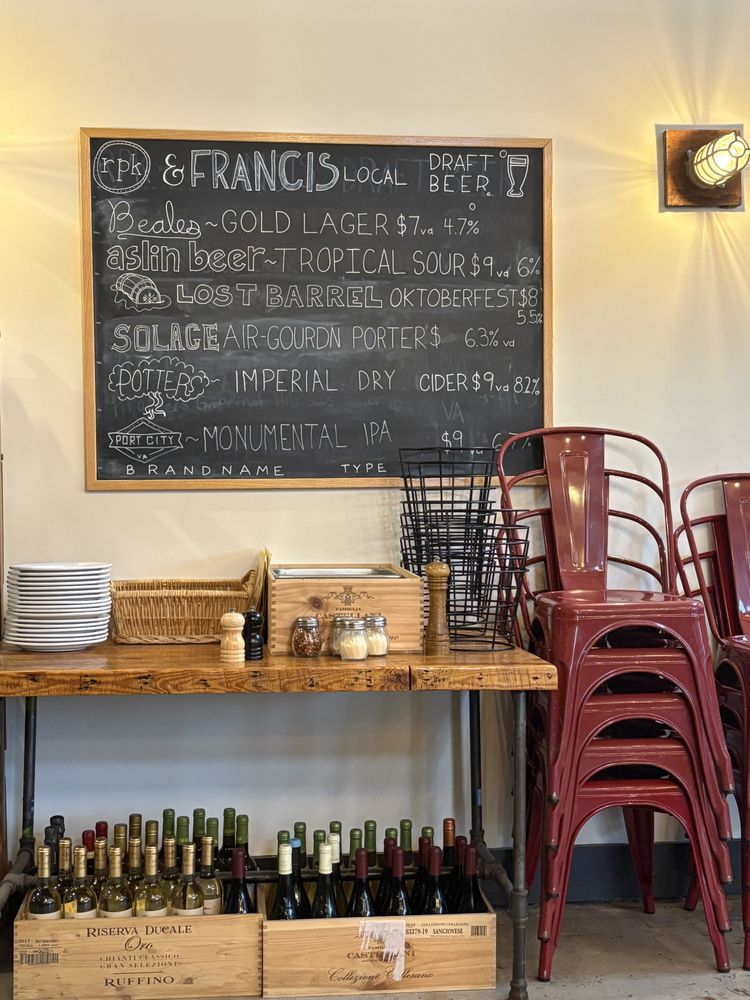 rpk & FRANCIS LOCAL DRAFT BEER
Beales ~ GOLD LAGER $7 va 4.7%
aslin beer ~ TROPICAL SOUR $9 va 6%
LOST BARREL OKTOBERFEST $8 5.5%
SOLACE AIR-GOURDN PORTER $ 6.3% va
POTTERS ~ IMPERIAL DRY CIDER $9 va 8.2%
VA
PORT CITY VA ~ MONUMENTAL IPA $9
BRAND NAME TYPE
FAMIGLIA
CASTELLANI
RISERVA DUCALE
Oro
CHIANTI CLASSICO
GRAN SELEZIONE
RUFFINO
SANGIOVESE
83379-19
Collezione Collesano